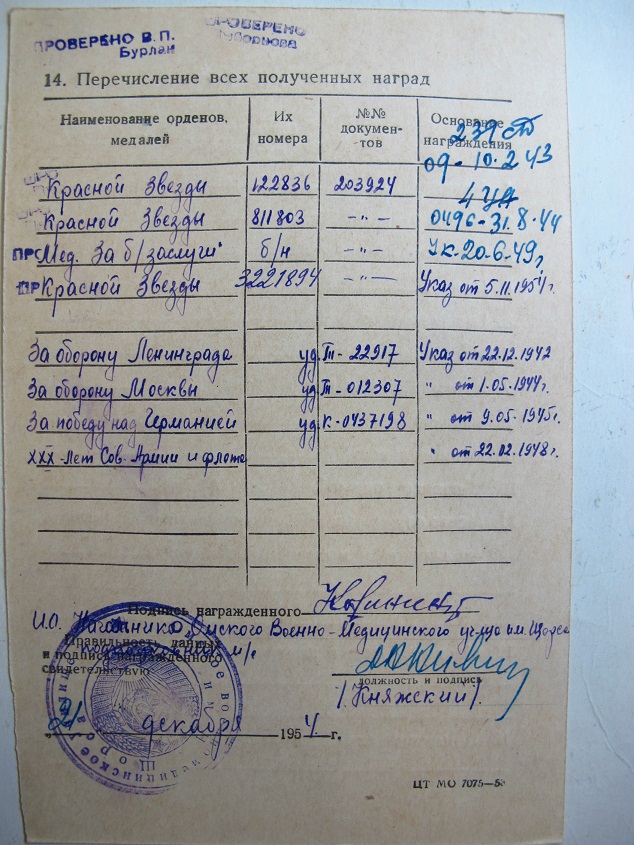 ПРОВЕРЕНО В. П.
Бурлан
ПРОВЕРЕНО
14. Перечисление всех полученных наград
Наименование орденов, медалей
Их номера
№№ докумен-тов
Основание награждения
239
09-10.2 43
Красной Звезды 122836 203924
Красной Звезды 811803 -"- 0496-31.8.44
Мед. За б/заслуги б/н -"- Ук-20-6-49г
Красной Звезды 3221894 -"- Указ от 5.11.1954г.
За оборону Ленинграда уд. Т-22917 Указ от 22.12.1942
За оборону Москвы уд. Т-012307 " от 1.05-1944г.
За победу над Германией уд. К-0437198 " 9.05-1945г.
XXX-Лет Сов. Армии и флота " от 22.02.1948г.
Подпись награжденного
И.О. Начальника Омского Военно-Медицинского уч-ща им. Щорса
Правильность данных
и подпись награжденного
свидетельствую
должность и подпись
/Княжский/.
21 декабря 1954 г.
ЦТ МО 7075—53